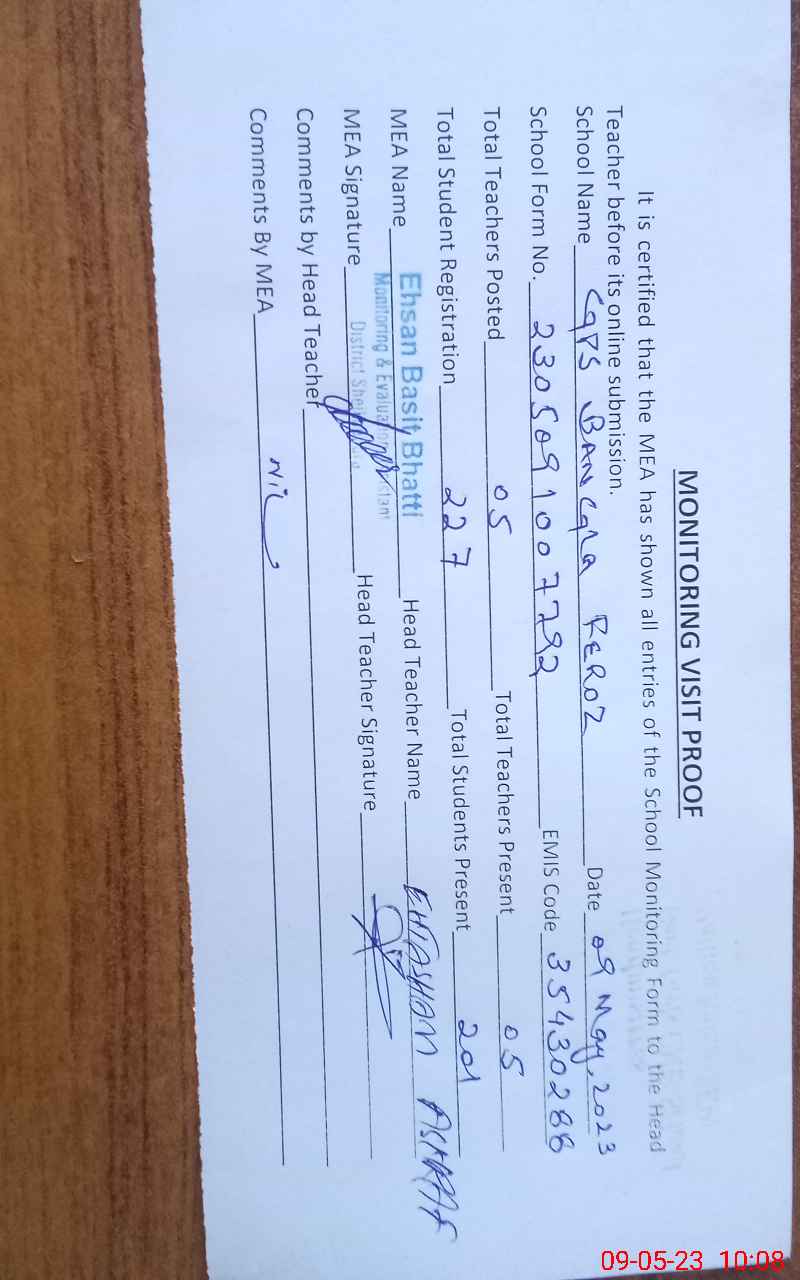 MONITORING VISIT PROOF
It is certified that the MEA has shown all entries of the School Monitoring Form to the Head
Teacher before its online submission.
School Name GPS BANGLA FEROZ Date 09 May, 2023
School Form No. 2305091007292 EMIS Code 35430288
Total Teachers Posted 05 Total Teachers Present 05
Total Student Registration 227 Total Students Present 201
MEA Name Ehsan Basit Bhatti Head Teacher Name EHTASHAM ASHRAF
Monitoring &
MEA Signature District Head Teacher Signature
Comments by Head Teacher
Comments By MEA Nil
09-05-23 10:08